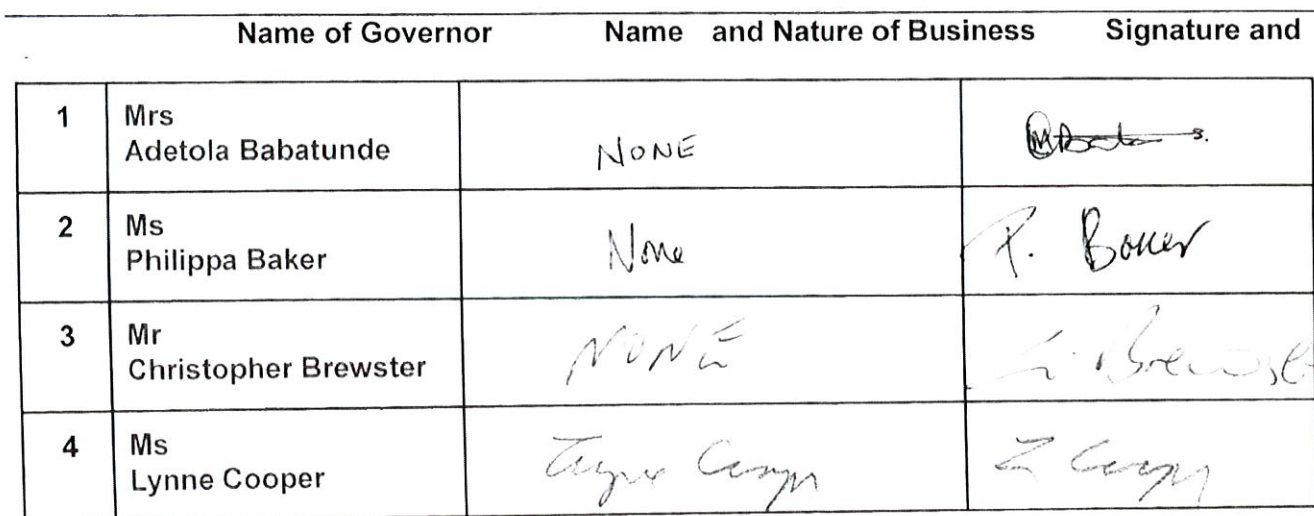 Name of Governor Name and Nature of Business Signature and
1 Mrs
Adetola Babatunde NONE
2 Ms
Philippa Baker None P. Baker
3 Mr
Christopher Brewster NONE C. Brewster
4 Ms
Lynne Cooper L Cooper